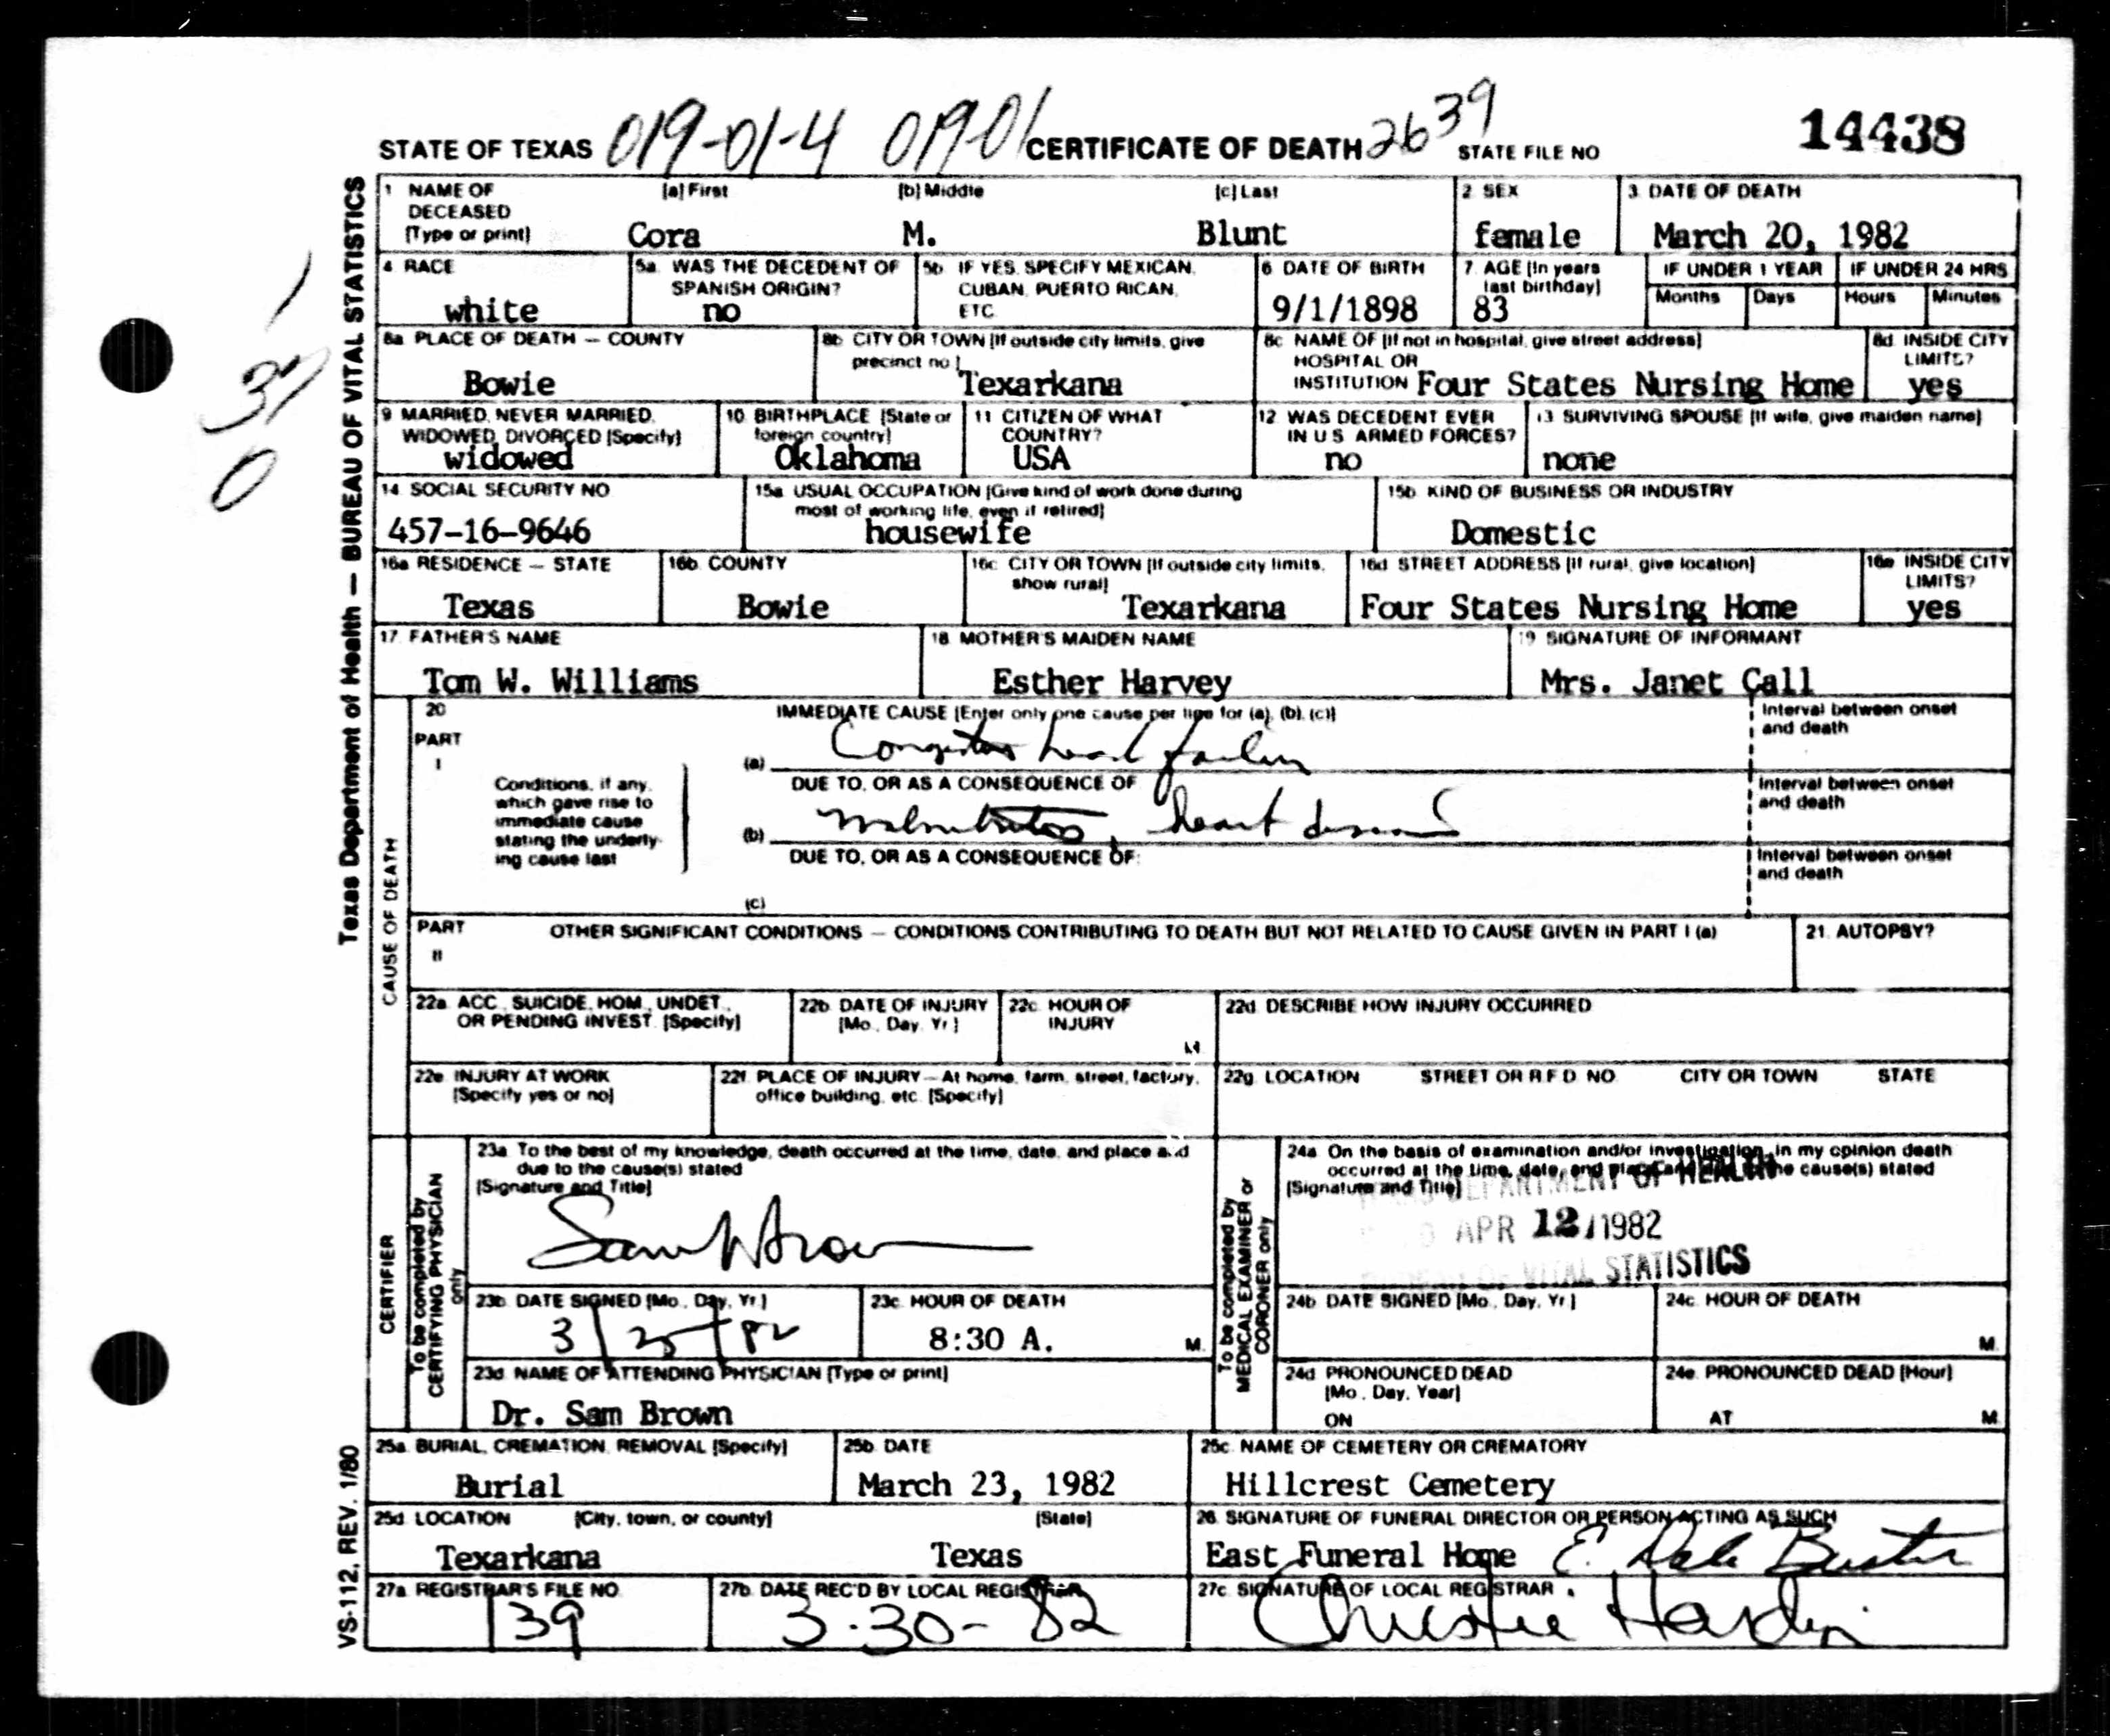 STATE OF TEXAS 019-01-4 019-01 CERTIFICATE OF DEATH 2639 STATE FILE NO 14438
Texas Department of Health — BUREAU OF VITAL STATISTICS
VS-112, REV. 1/80
1 NAME OF DECEASED [Type or print] [a] First [b] Middle [c] Last 2 SEX 3 DATE OF DEATH
Cora M. Blunt female March 20, 1982
4 RACE 5a WAS THE DECEDENT OF SPANISH ORIGIN? 5b IF YES, SPECIFY MEXICAN, CUBAN, PUERTO RICAN, ETC 6 DATE OF BIRTH 7 AGE [In years last birthday] IF UNDER 1 YEAR IF UNDER 24 HRS
Months Days Hours Minutes
white no 9/1/1898 83
8a PLACE OF DEATH — COUNTY 8b CITY OR TOWN [If outside city limits, give precinct no] 8c NAME OF [If not in hospital, give street address] HOSPITAL OR INSTITUTION 8d INSIDE CITY LIMITS?
Bowie Texarkana Four States Nursing Home yes
9 MARRIED, NEVER MARRIED, WIDOWED, DIVORCED [Specify] 10 BIRTHPLACE [State or foreign country] 11 CITIZEN OF WHAT COUNTRY? 12 WAS DECEDENT EVER IN U S ARMED FORCES? 13 SURVIVING SPOUSE [If wife, give maiden name]
widowed Oklahoma USA no none
14 SOCIAL SECURITY NO 15a USUAL OCCUPATION [Give kind of work done during most of working life, even if retired] 15b KIND OF BUSINESS OR INDUSTRY
457-16-9646 housewife Domestic
16a RESIDENCE — STATE 16b COUNTY 16c CITY OR TOWN [If outside city limits, show rural] 16d STREET ADDRESS [If rural, give location] 16e INSIDE CITY LIMITS?
Texas Bowie Texarkana Four States Nursing Home yes
17 FATHER'S NAME 18 MOTHER'S MAIDEN NAME 19 SIGNATURE OF INFORMANT
Tom W. Williams Esther Harvey Mrs. Janet Call
CAUSE OF DEATH
20 PART I IMMEDIATE CAUSE [Enter only one cause per line for (a), (b), (c)] Interval between onset and death
(a) Congestive heart failure
Conditions, if any, which gave rise to immediate cause stating the underlying cause last
DUE TO, OR AS A CONSEQUENCE OF Interval between onset and death
(b) heart disease
DUE TO, OR AS A CONSEQUENCE OF: Interval between onset and death
(c)
PART II OTHER SIGNIFICANT CONDITIONS — CONDITIONS CONTRIBUTING TO DEATH BUT NOT RELATED TO CAUSE GIVEN IN PART I (a) 21. AUTOPSY?
22a ACC, SUICIDE, HOM, UNDET, OR PENDING INVEST [Specify] 22b DATE OF INJURY [Mo, Day, Yr] 22c HOUR OF INJURY M 22d DESCRIBE HOW INJURY OCCURRED
22e INJURY AT WORK [Specify yes or no] 22f PLACE OF INJURY — At home, farm, street, factory, office building, etc [Specify] 22g LOCATION STREET OR R F D NO CITY OR TOWN STATE
CERTIFIER
To be completed by CERTIFYING PHYSICIAN only
23a To the best of my knowledge, death occurred at the time, date, and place and due to the cause(s) stated
[Signature and Title]
Sam W Brown
23b DATE SIGNED [Mo, Day, Yr] 23c HOUR OF DEATH
3/25/82 8:30 A. M.
23d NAME OF ATTENDING PHYSICIAN [Type or print]
Dr. Sam Brown
To be completed by MEDICAL EXAMINER or CORONER only
24a On the basis of examination and/or investigation, in my opinion death occurred at the time, date, and place and due to the cause(s) stated
[Signature and Title]
DEPARTMENT OF HEALTH
APR 12 1982
VITAL STATISTICS
24b DATE SIGNED [Mo, Day, Yr] 24c HOUR OF DEATH M
24d PRONOUNCED DEAD [Mo, Day, Year] ON 24e PRONOUNCED DEAD [Hour] AT M
25a BURIAL, CREMATION, REMOVAL [Specify] 25b DATE 25c NAME OF CEMETERY OR CREMATORY
Burial March 23, 1982 Hillcrest Cemetery
25d LOCATION [City, town, or county] [State] 26 SIGNATURE OF FUNERAL DIRECTOR OR PERSON ACTING AS SUCH
Texarkana Texas East Funeral Home E. Dale Buster
27a REGISTRAR'S FILE NO 27b DATE REC'D BY LOCAL REGISTRAR 27c SIGNATURE OF LOCAL REGISTRAR
139 3-30-82 Christie Hardin